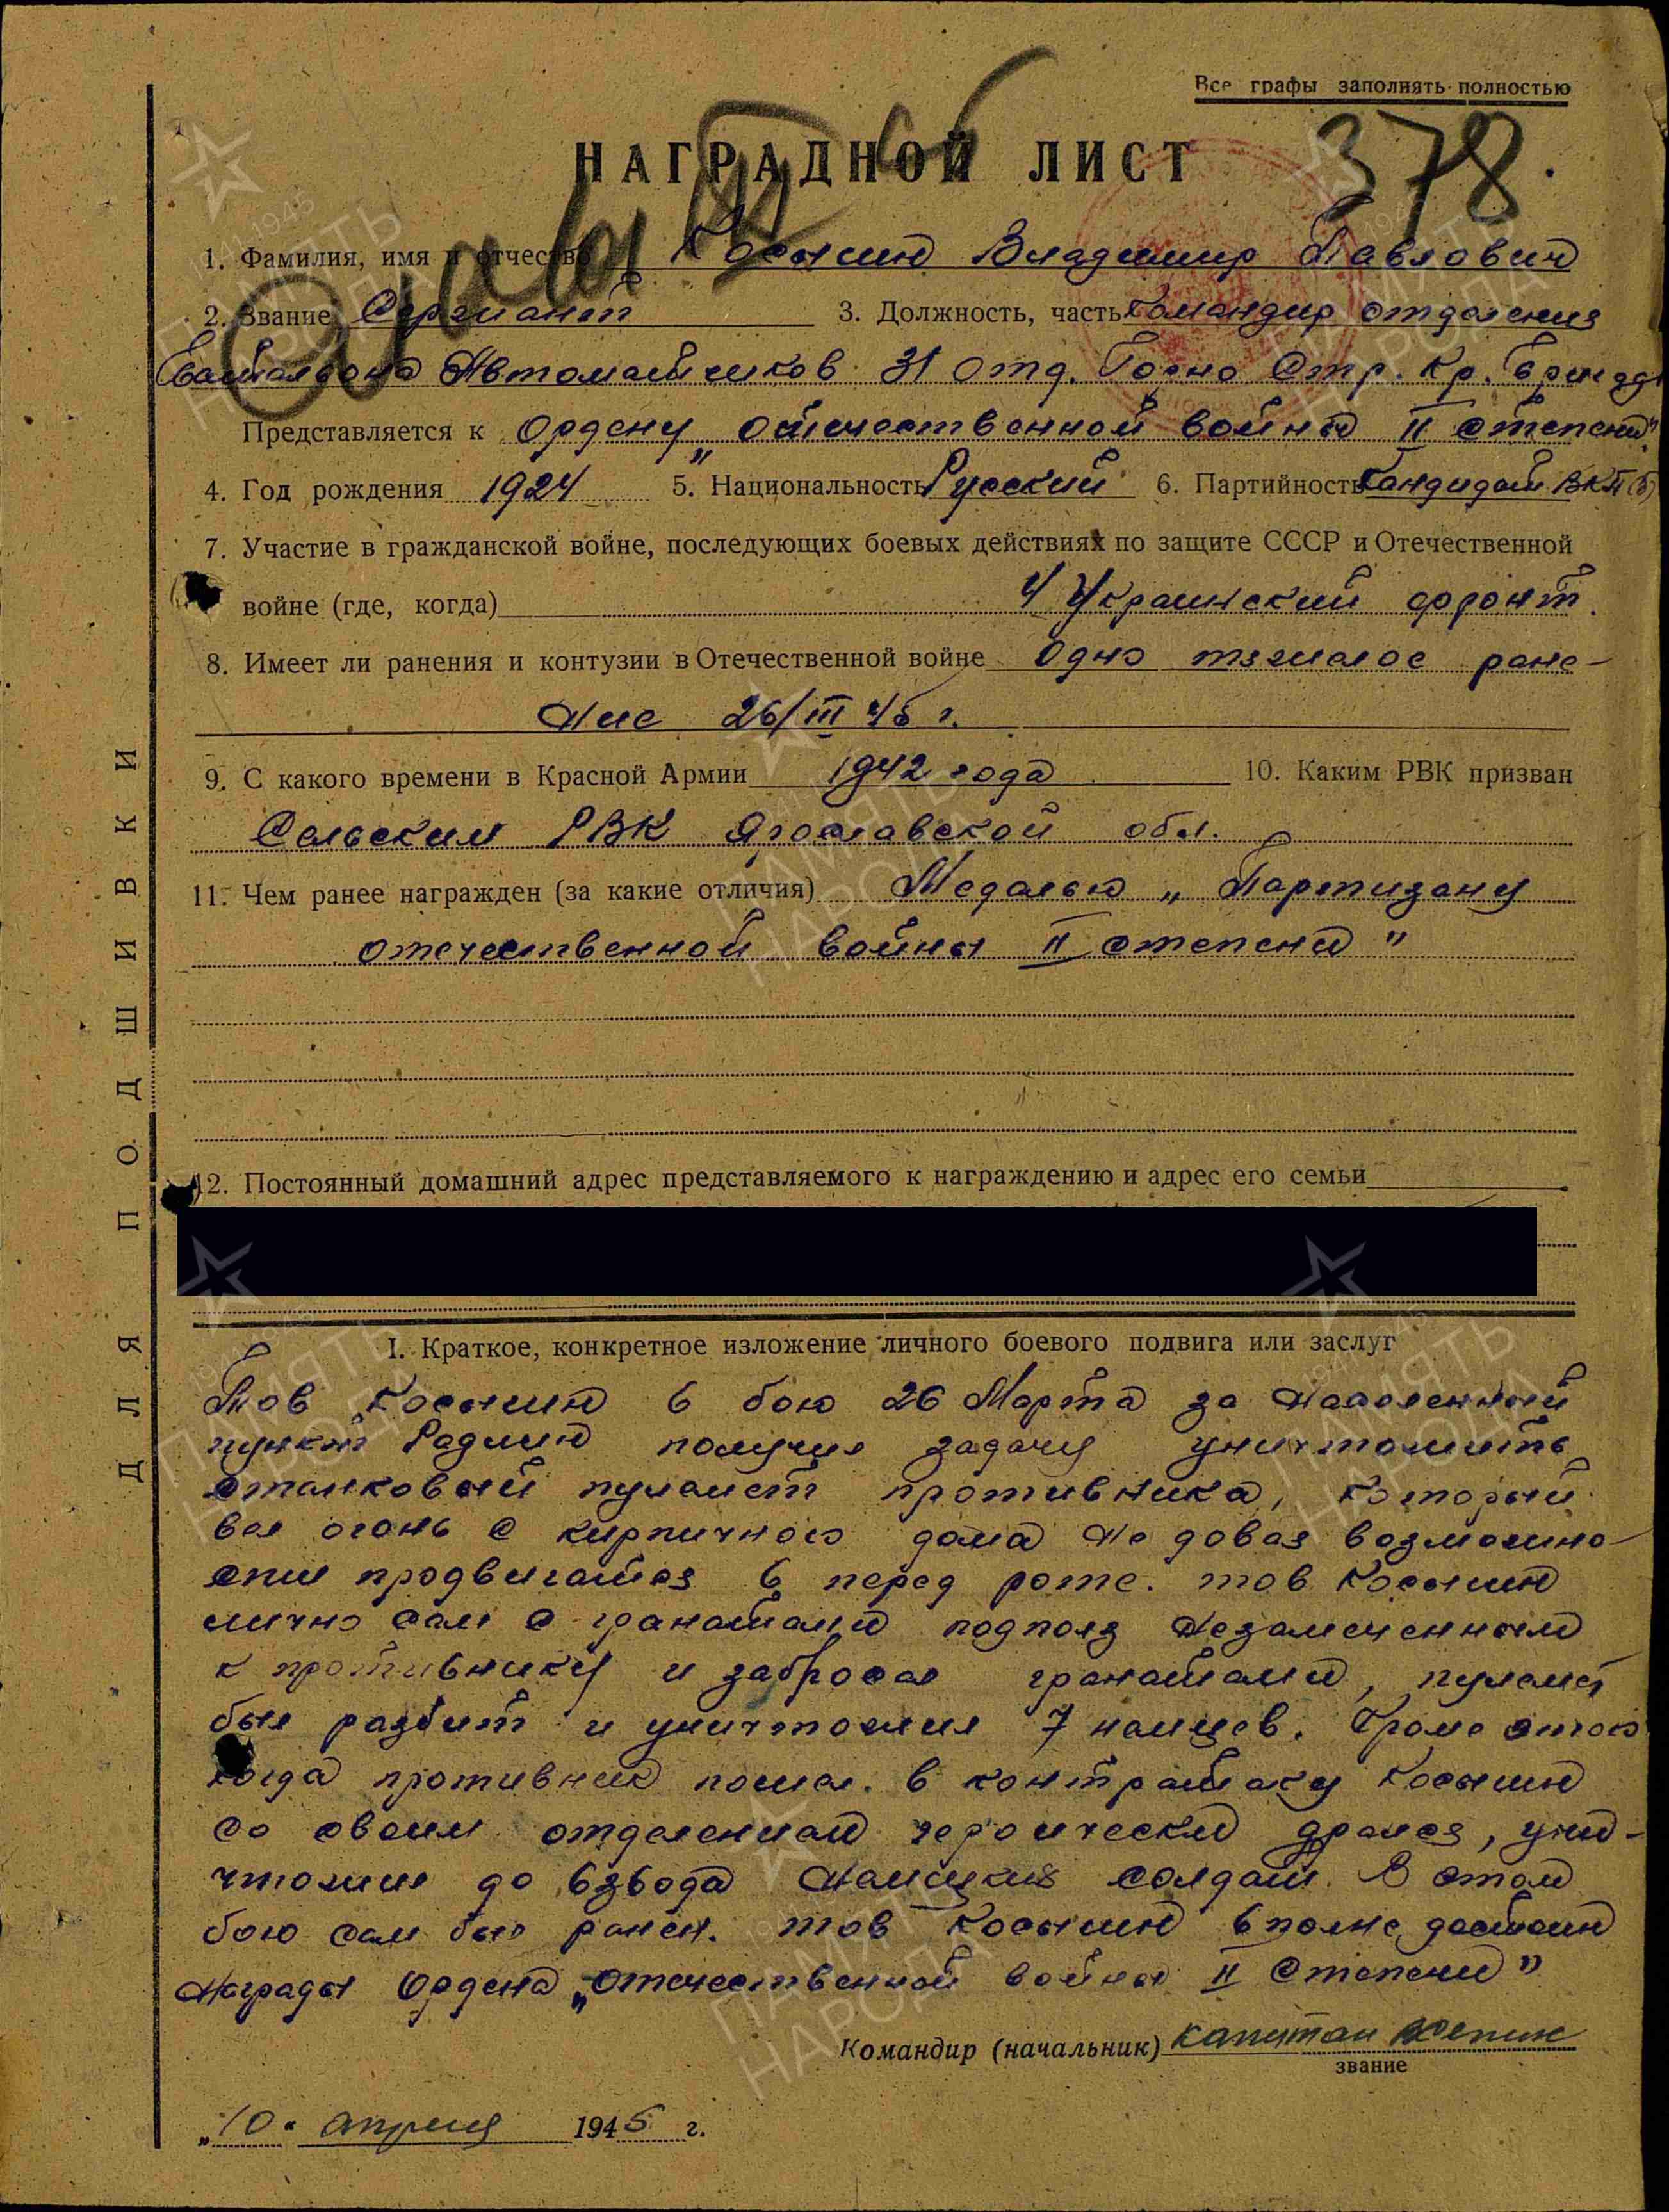 Все графы заполнять полностью
НАГРАДНОЙ ЛИСТ
378.
1. Фамилия, имя и отчество Косынин Владимир Павлович
2. Звание Сержиант 3. Должность, часть Командир отделения
Батальона Автоматчиков 31 Отд. Горно Стр. Кр.
Представляется к Ордену „Отечественной войны II степени"
4. Год рождения 1924 5. Национальность Русский 6. Партийность Кандидат ВКП(б)
7. Участие в гражданской войне, последующих боевых действиях по защите СССР и Отечественной
войне (где, когда) 4 Украинский фронт.
8. Имеет ли ранения и контузии в Отечественной войне Одно тяжелое ране-
ние 26/III 45 г.
9. С какого времени в Красной Армии 1942 года 10. Каким РВК призван
Сельским РВК Ярославской обл.
11. Чем ранее награжден (за какие отличия) Медалью „Партизану
отечественной войны II степени"
12. Постоянный домашний адрес представляемого к награждению и адрес его семьи
I. Краткое, конкретное изложение личного боевого подвига или заслуг
Тов Косынин в бою 26 Марта за Населенный
пункт Радлин получил задачу уничтожить
станковый пулемет противника, который
вел огонь с кирпичного дома не довая возможно-
сти продвигатся в перед роте. тов Косынин
лично сам с гранатами подполз незамеченным
к противнику и забросал гранатами, пулемет
был разбит и уничтожил 7 немцев. Кроме этого
когда противник пошел в контратаку Косынин
со своим отделением героически дрался, уни-
чтожил до взвода немецких солдат. В этом
бою сам был ранен. тов Косынин вполне достоин
Награды Ордена „Отечественной войны II Степени"
Командир (начальник) капитан
звание
„10" апреля 1945 г.
ДЛЯ ПОДШИВКИ
ПАМЯТЬ НАРОДА
1941-1945